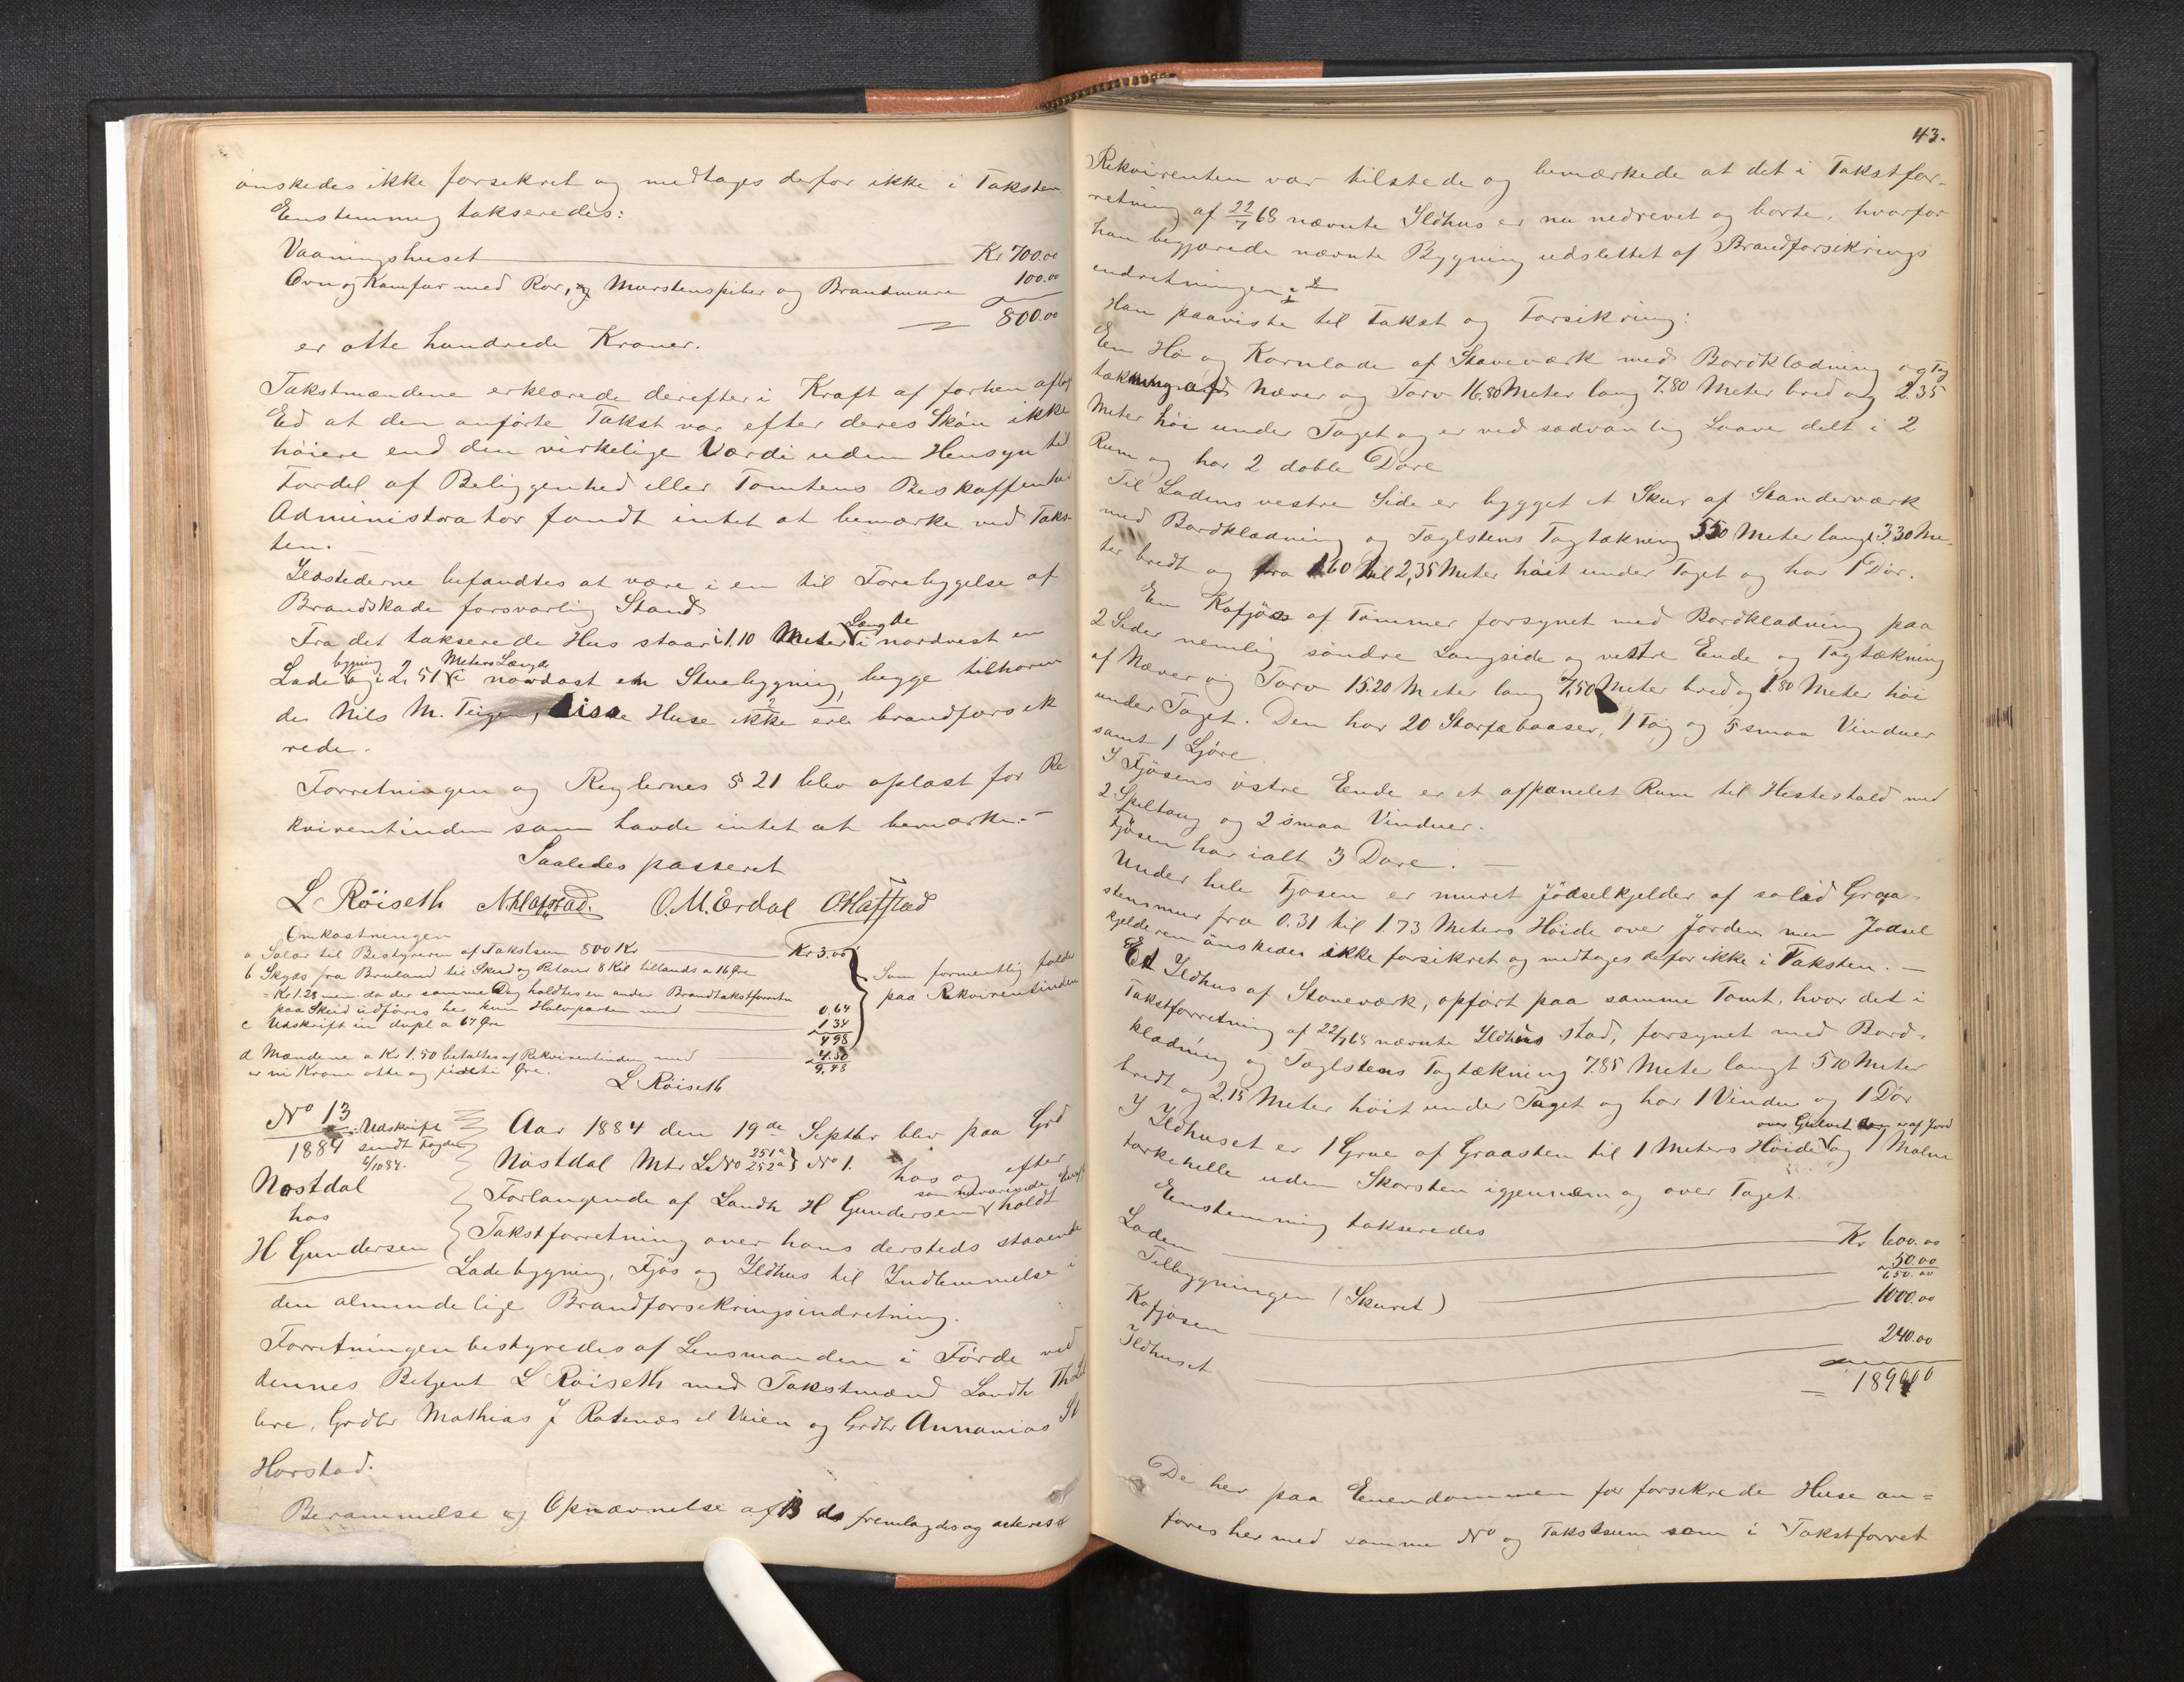 ønskedes ikke forsikret og medtages defor ikke i Taksten
Eenstemmig takseredes:
Vaaningshuset Kr 700.00
Ovn og Komfur med Rør, og Murstenspiber og Brandmure 100.00
= 800.00
er otte hundrede Kroner.
Takstmændene erklærede derefter i Kraft af forhen aflagt
Ed at den anførte Takst var efter deres Skjøn ikke
høiere end den virkelige Værdi uden Hensyn til
Fordel af Beliggenhed eller Tomtens Beskaffenhed
Administrator fandt intet at bemærke ved Taks-
ten.
Ildstederne befandtes at være i en til Forebygelse af
Brandskade forsvarlig Stand
Fra det takserede Hus staar i 1.10 Meter Længde i nordvest en
Ladebygning og i 2.51 Meters Længde i nordost en Stuebygning, begge tilhøren
de Nils M. Teigen, disse Huse ikke ere brandforsik
rede.
Forretningen og Reglernes § 21 blev oplæst for Re
kvirentinden som havde intet at bemærke. –
Saaledes passeret
L Röiseth N. Hafstad. O. M. Erdal O Hafstad
Omkostningen
a Salær til Bestyreren af Takstsum 800 Kr Kr 3.00
b Skyds fra Bruland til Skeid og Retour 8 Kil tillands a 16 Øre
= Kr 1.28 men da der samme Dag holdtes en anden Brandtakstforretn
paa Skeid udføres her kun Halvparten med 0.64
c Udskrift in dupl a 67 Øre 1.34
4.98
Som formentlig falde
paa Rekvirentinden
d Mændene a Kr 1.50 betaltes af Rekvirentinden med 4.50
9.48
er ni Krone otte og firti Øre.
L Röiseth
No 13
1884
Udskrift
sendt Fogden
6/10 84.
Nøstdal
hos
H Gundersen
Aar 1884 den 19de Septbr blev paa Grd
Nøstdal Mtr L No 251a 252a } No 1. hos og efter
Forlangende af Landh H Gundersen holdt
Takstforretning over hans dersteds staaende
Ladebygning, Fjøs og Ildhus til Indlemmelse i
den almindelige Brandforsikringsindretning.
Forretningen bestyredes af Lensmanden i Førde ved
dennes Betjent L Röiseth med Takstmænd Landh
Grdbr Mathias J Rotenæs el Veien og Grdbr Annanias
Horstad.
Berammelse og Opnævnelse af 13 ds fremlagdes og acteres
43.
Rekvirenten var tilstede og bemærkede at det i Takstfor-
retning af 22/7 68 nævnte Ildhus er nu nedrevet og borte, hvorfor
han begjærede nævnte Bygning udslettet af Brandforsikrings
indretningen.
Han paaviste til Takst og Forsikring:
En Hø og Kornlade af Staveværk med Bordklædning og Tag
tækning af Næver og Torv 16.80 Meter lang 7.80 Meter bred og 2.35
Meter høi under Taget og er ved sædvanlig Laave delt i 2
Rum og har 2 doble Døre
Til Ladens vestre Side er bygget et Skur af Standerværk
med Bordklædning og Taglstens Tagtækning 5.50 Meter langt 3.30 Me-
ter bredt og fra 1.60 til 2,35 Meter høit under Taget og har 1 Dør.
En Kofjøs af Tømmer forsynet med Bordklædning paa
2 Sider nemlig søndre Langside og vestre Ende og Tagtækning
af Næver og Torv 15.20 Meter lang 7,50 Meter bred og 1.80 Meter høi
under Taget. Den har 20 Storfæbaaser, 1 Tag og 5 smaa Vinduer
samt 1 Gjøre
I Fjøsens østre Ende er et afpanelet Rum til Hestestald med
2 Spiltoug og 2 smaa Vinduer.
Fjøsen har ialt 3 Døre. –
Under hele Fjøsen er muret Jødselkjelder af solid Graa-
stensmur fra 0.31 til 1.73 Meters Høide over Jorden men Jødsel
kjelderen ønskedes ikke forsikret og medtages defor ikke i Taksten. –
Et Ildhus af Staveværk, opført paa samme Tomt, hvor det i
Takstforretning af 22/7 68 nævnte Ildhus stod, forsynet med Bord-
klædning og Taglstens Tagtækning 7.85 Meter langt 5.70 Meter
bredt og 2.15 Meter høit under Taget og har 1 Vindu og 1 Dør
I Ildhuset er 1 Grue af Graasten til 1 Meters Høide over Gulvet der er af Jord og 1 Malm
tørkehelle uden Skorsten igjennem og over Taget.
Eenstemmig takseredes
Laden Kr 600.00
Tilbygningen (Skuret) 50.00
650.00
Kofjøsen 1000.00
Ildhuset 240.00
= 1890.00
De her paa Eiendommen før forsikrede Huse an=
føres her med samme No og Takstsum som i Takstforret